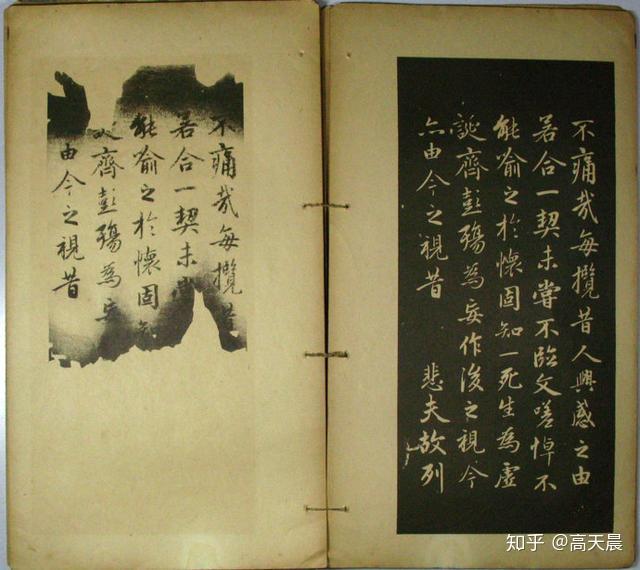 不痛哉每攬昔人興感之由
若合一契未嘗不臨文嗟悼不
能喻之於懷固知一死生為虛
誕齊彭殤為妄作後之視今
亦由今之視昔 悲夫故列
不痛哉每攬昔
若合一契未
能喻之於懷固知
齊彭殤為妄
由今之視昔
知乎 @高天晨